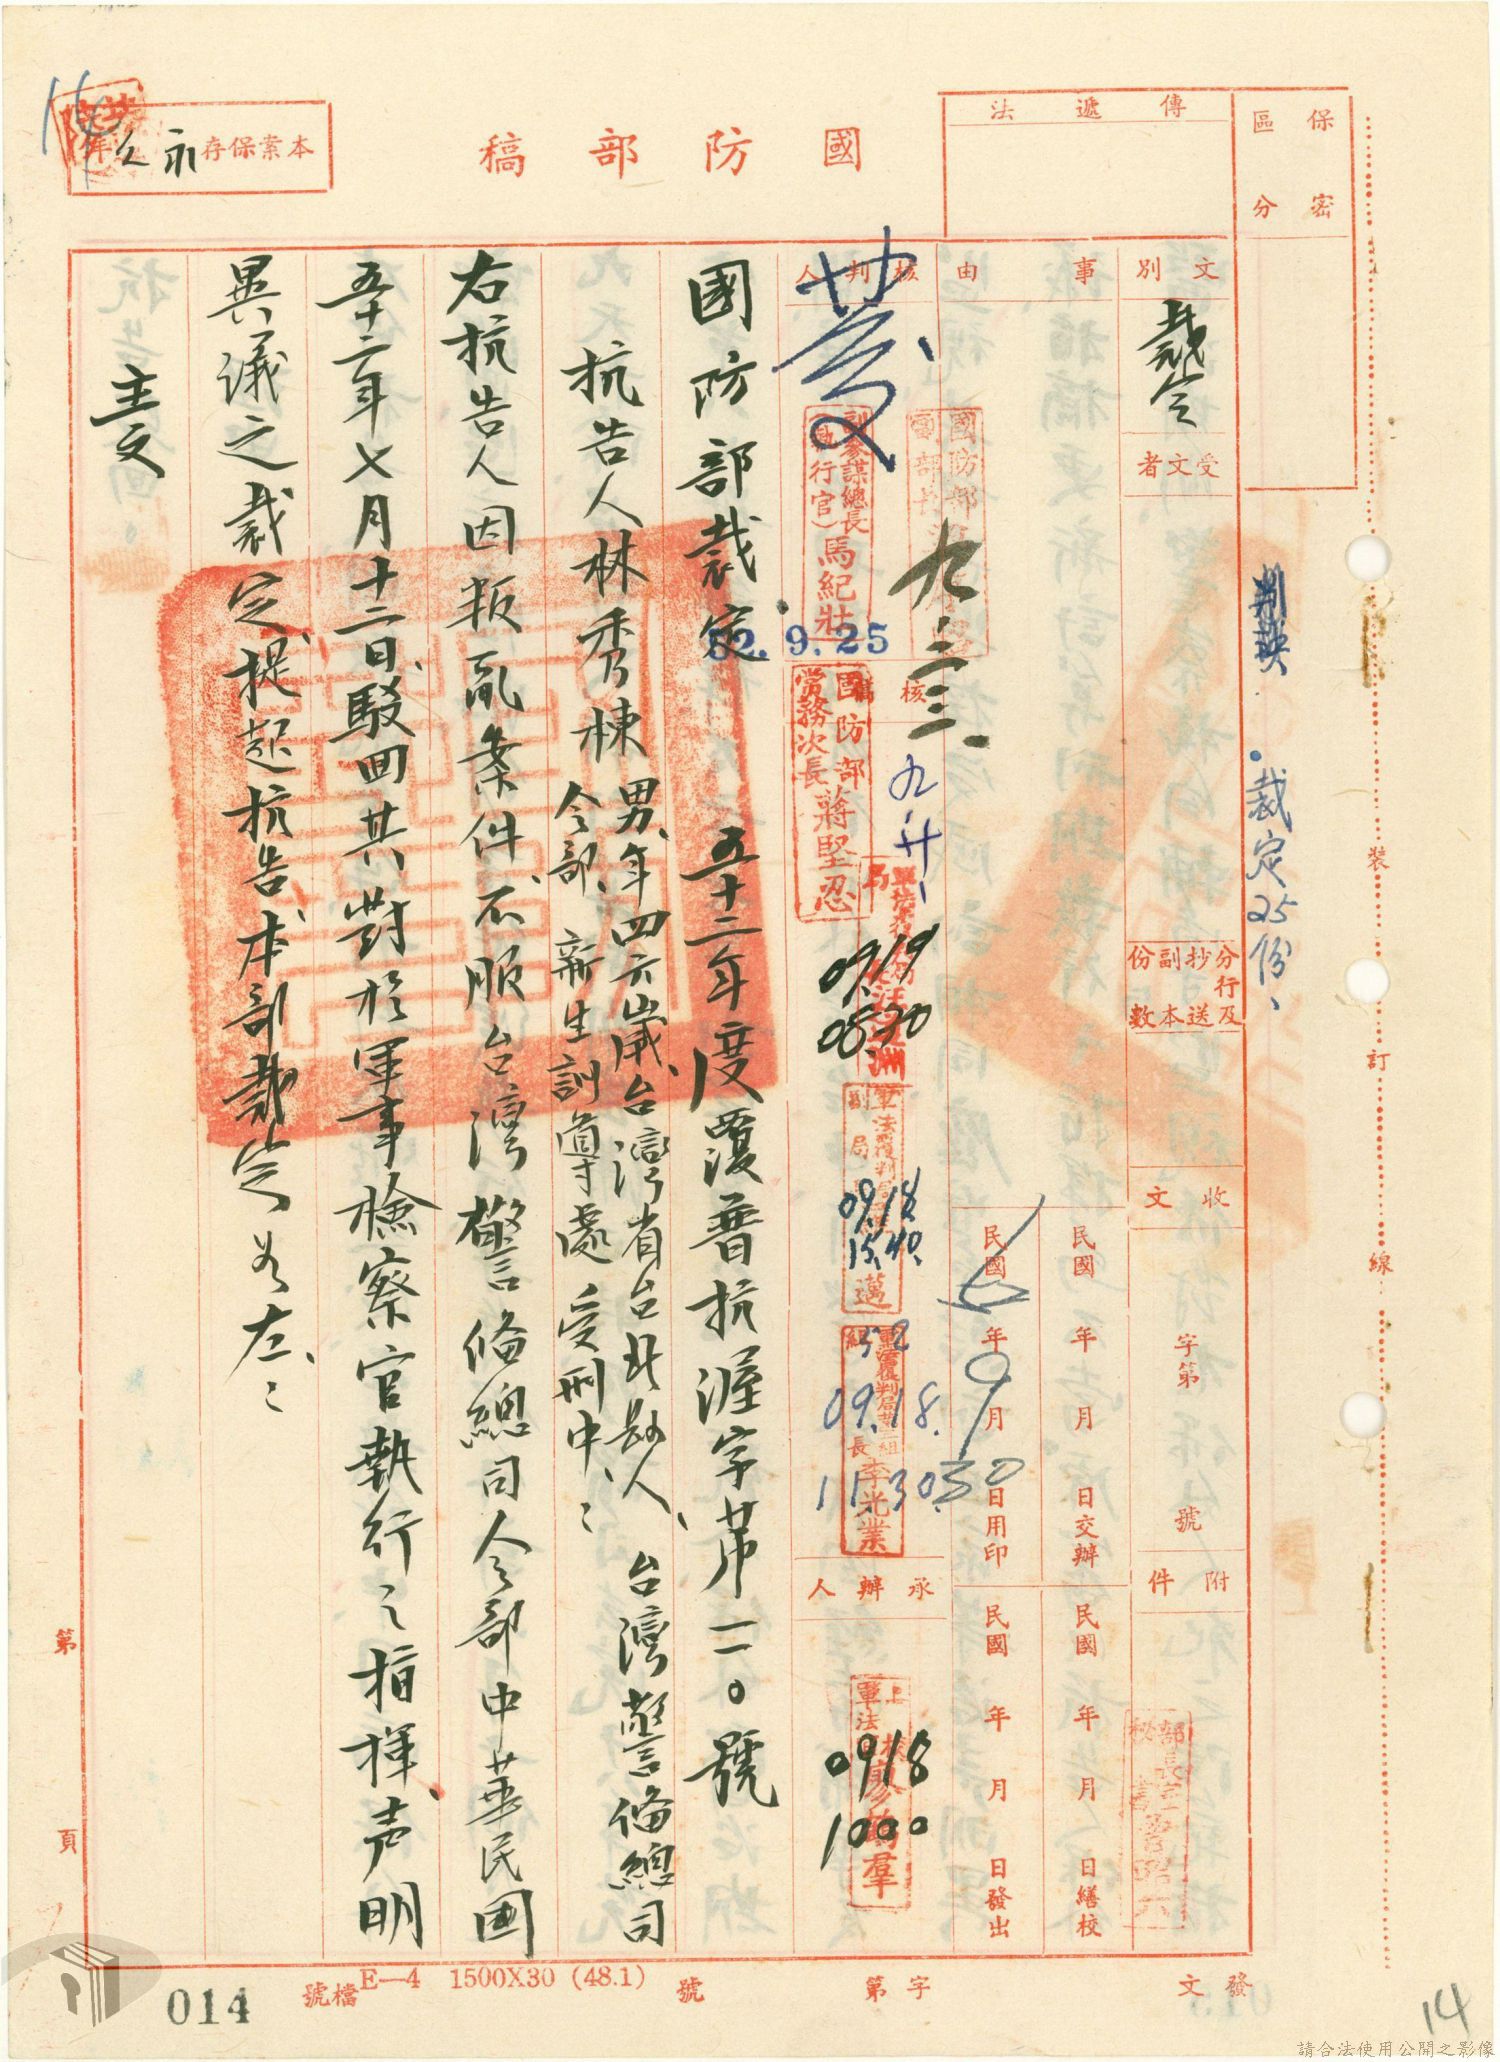 保密
區分
傳遞法
國防部稿
本案保存永久年
文別
裁定
受文者
分行及抄送副本份數
收文
字第
號
附件
事由
民國年月日交辦
民國年月日繕校
民國年9月30日用印
民國年月日發出
核判人
副參謀總長
(執行官)馬紀壯
九.二三.
核稿
國防部
常務次長蔣堅忍
52.9.25
09.19
0830
09.18.
15.40.
52
09.18.
11.30.
李光業
承辦人
0918
1000
裁定25份、
裝訂線
國防部裁定
五十二年度覆普抗渥字第一一〇號
抗告人林秀棟男、年四六歲、台灣省台北縣人、台灣警備總司
令部、新生訓導處受刑中、
右抗告人因叛亂案件、不服台灣警備總司令部中華民國
五十二年七月十二日、駁回其對於軍事檢察官執行之指揮、声明
異議之裁定、提起抗告、本部裁定如左、
主文
第頁
發文
字第
號
E—4 1500X30 (48.1)
檔號
014
14
請合法使用公開之影像